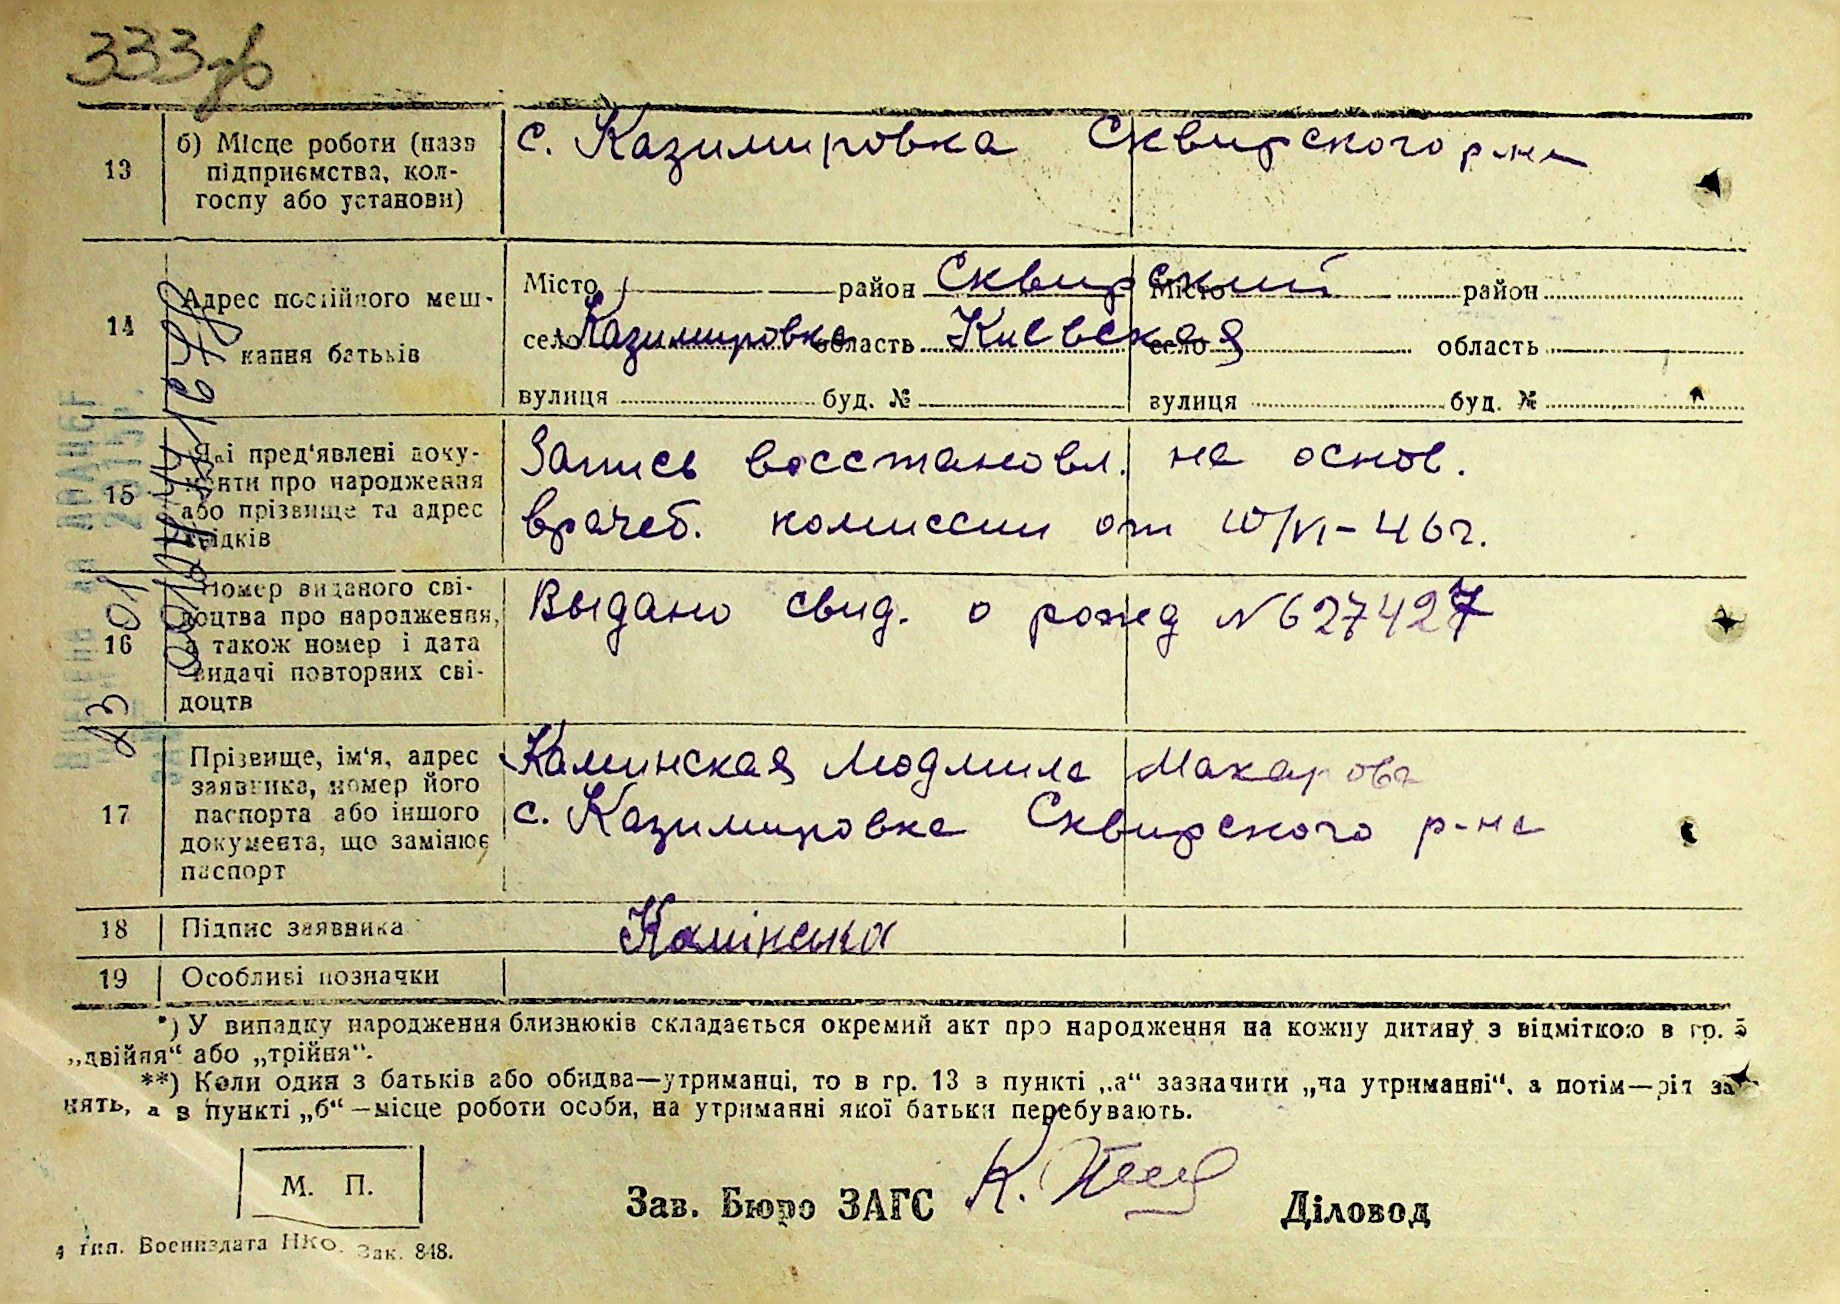 333зв
13 б) Місце роботи (назв підприємства, колгоспу або установи) с. Казимировка Сквирского р-на
14 Адрес постійного мешкання батьків
Місто район Сквирский Місто район
село Казимировка область Киевская село область
вулиця буд. № вулиця буд. №
15 Які пред'явлені документи про народження або прізвище та адрес свідків
Запись восстановл. на основ.
врачеб. комиссии от 10/VI-46г.
16 Номер виданого свідоцтва про народження, а також номер і дата видачі повторних свідоцтв
Выдано свид. о рожд N 627427
17 Прізвище, ім'я, адрес заявника, номер його паспорта або іншого документа, що замінює паспорт
Каминская Людмила Макаровн
с. Казимировка Сквирского р-на
18 Підпис заявника Камінська
19 Особливі позначки
*) У випадку народження близнюків складається окремий акт про народження на кожну дитину з відміткою в гр. 5
„двійня“ або „трійня“.
**) Коли один з батьків або обидва—утриманці, то в гр. 13 в пункті „а“ зазначити „на утриманні“, а потім—рід за
нять, а в пункті „б“ —місце роботи особи, на утриманні якої батьки перебувають.
М. П.
Зав. Бюро ЗАГС Діловод
тип. Воениздата НКО. Зак. 848.